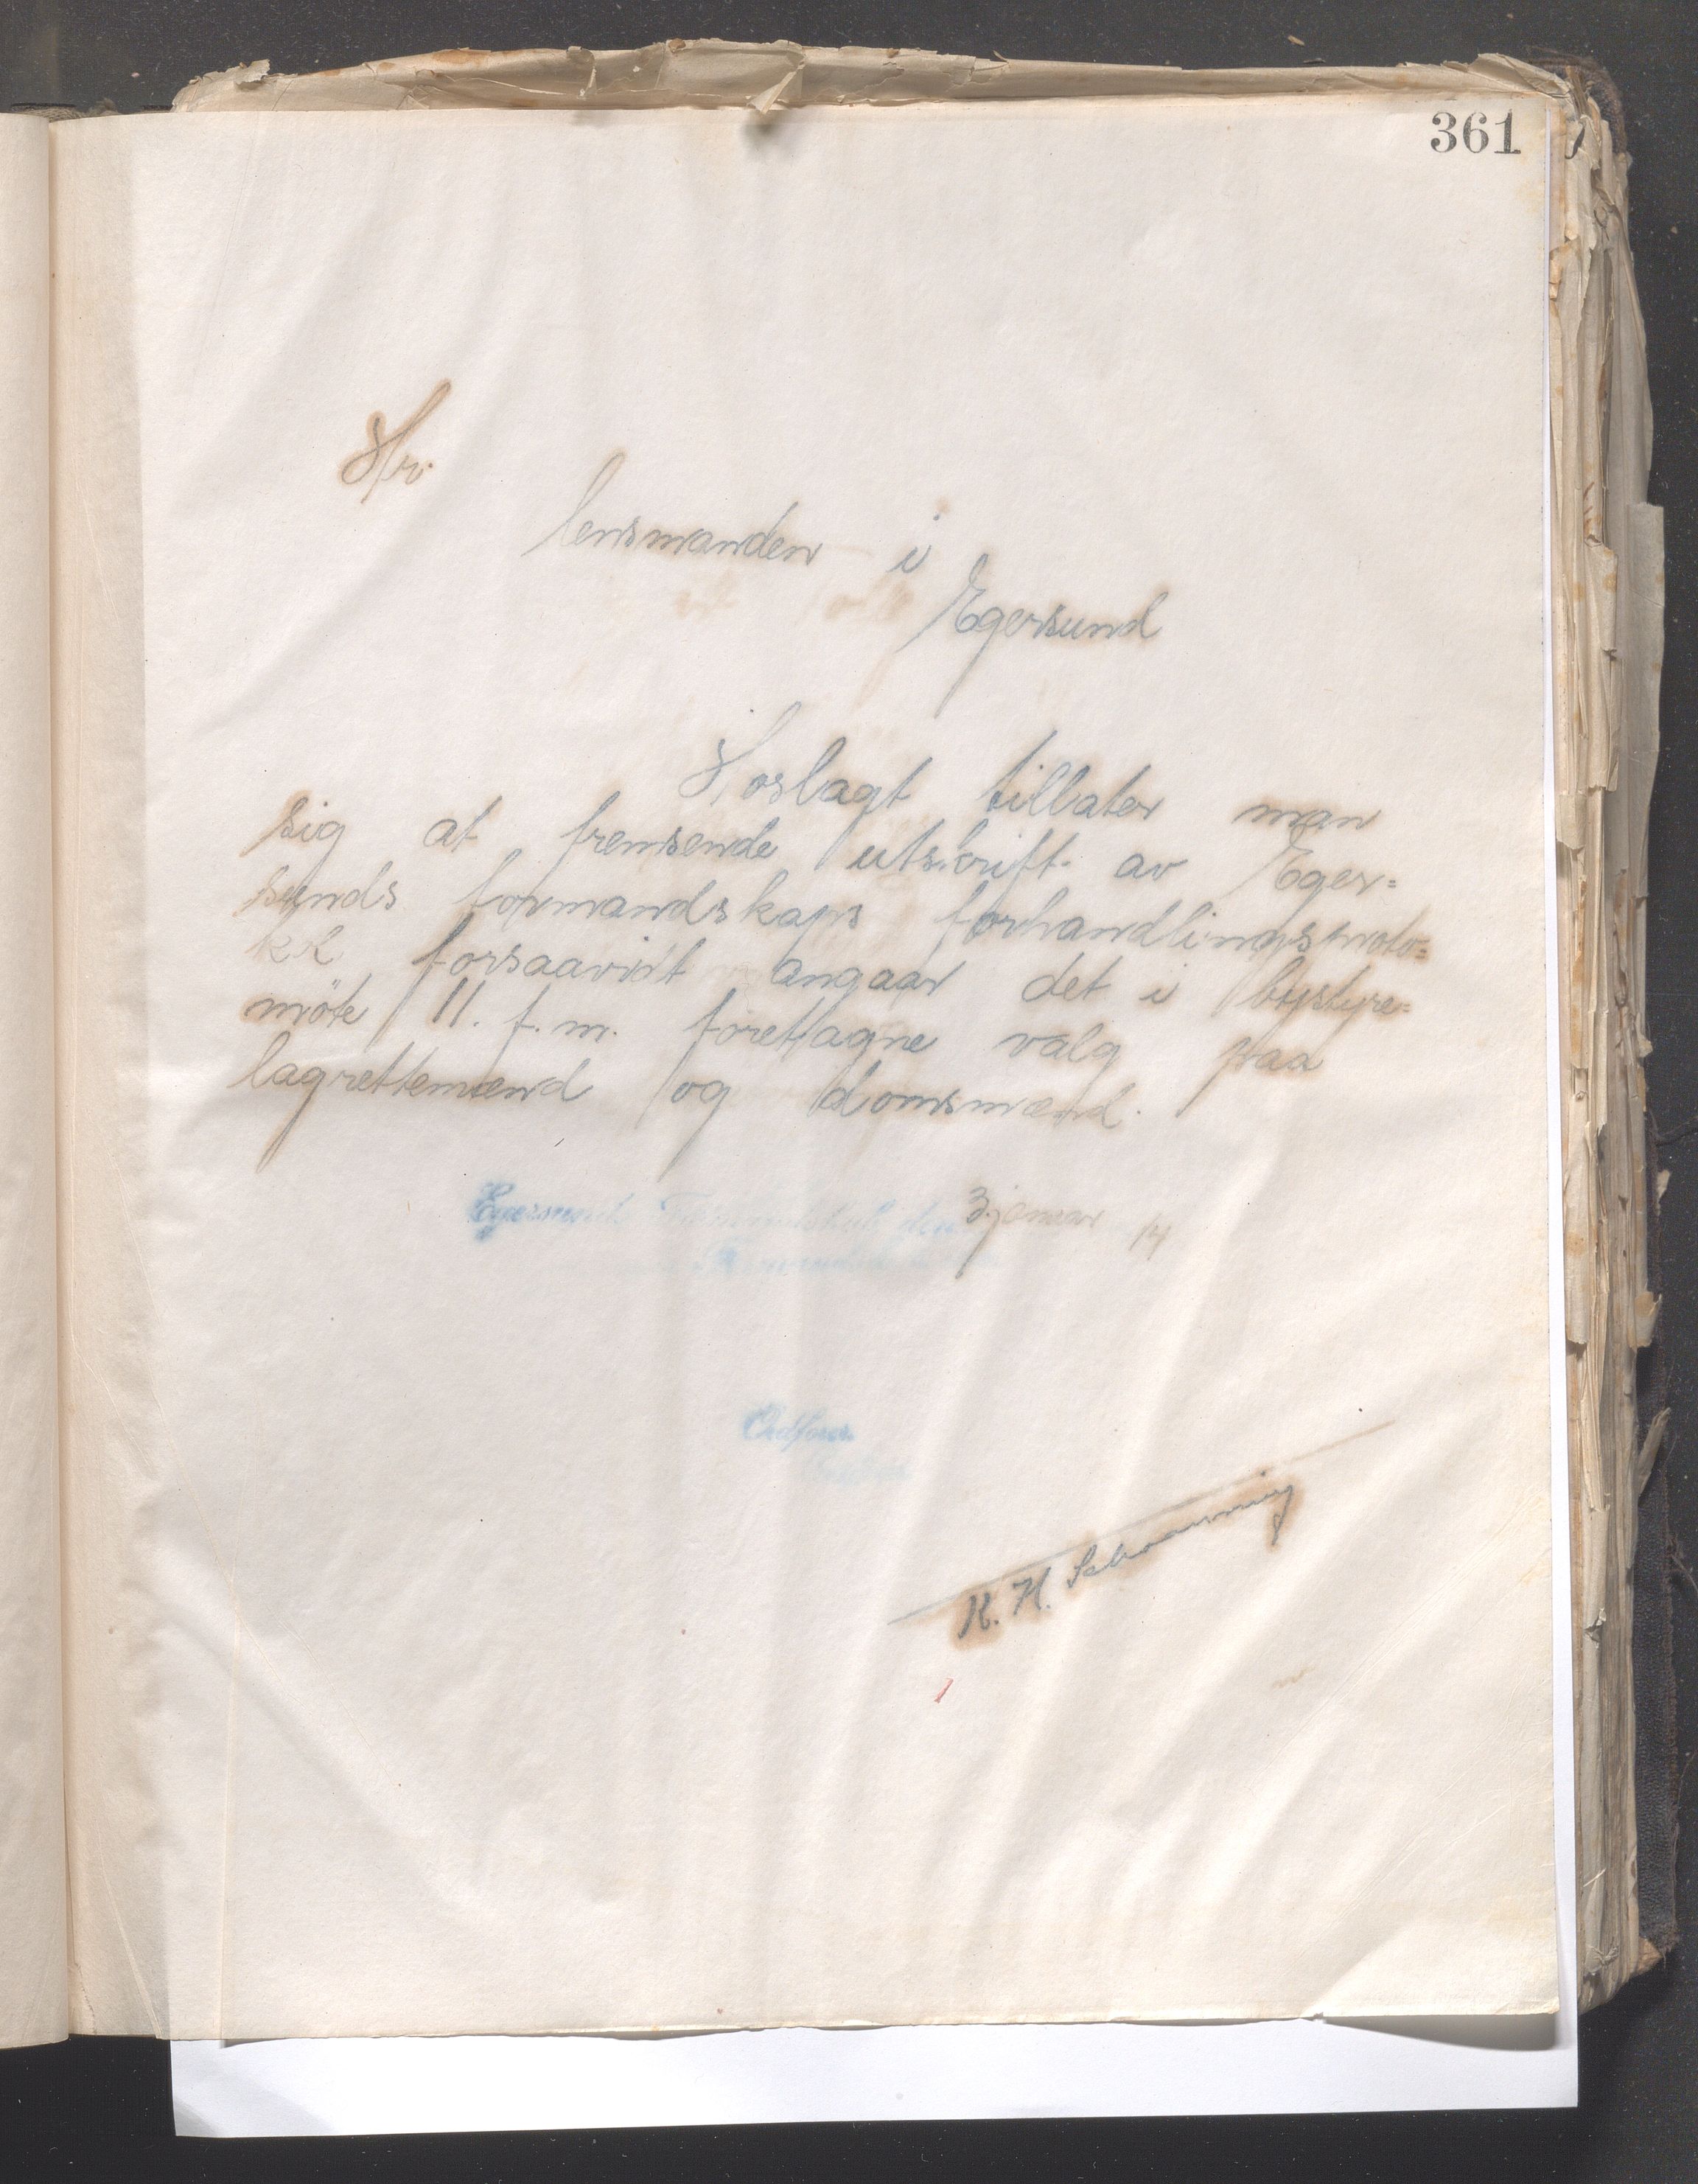 361
Hr.
lensmanden i
Egersund
Hoslagt tillater man
sig at fremsende utskrift av Eger=
sunds formandskaps forhandlingsproto=
kol forsaavidt angaar det i bystyre=
möte 11. f. m. foretagne valg paa
lagrettemænd og domsmænd.
Egersunds Formandskab den 3 januar 14
Ordfører
K. H. Schwanning